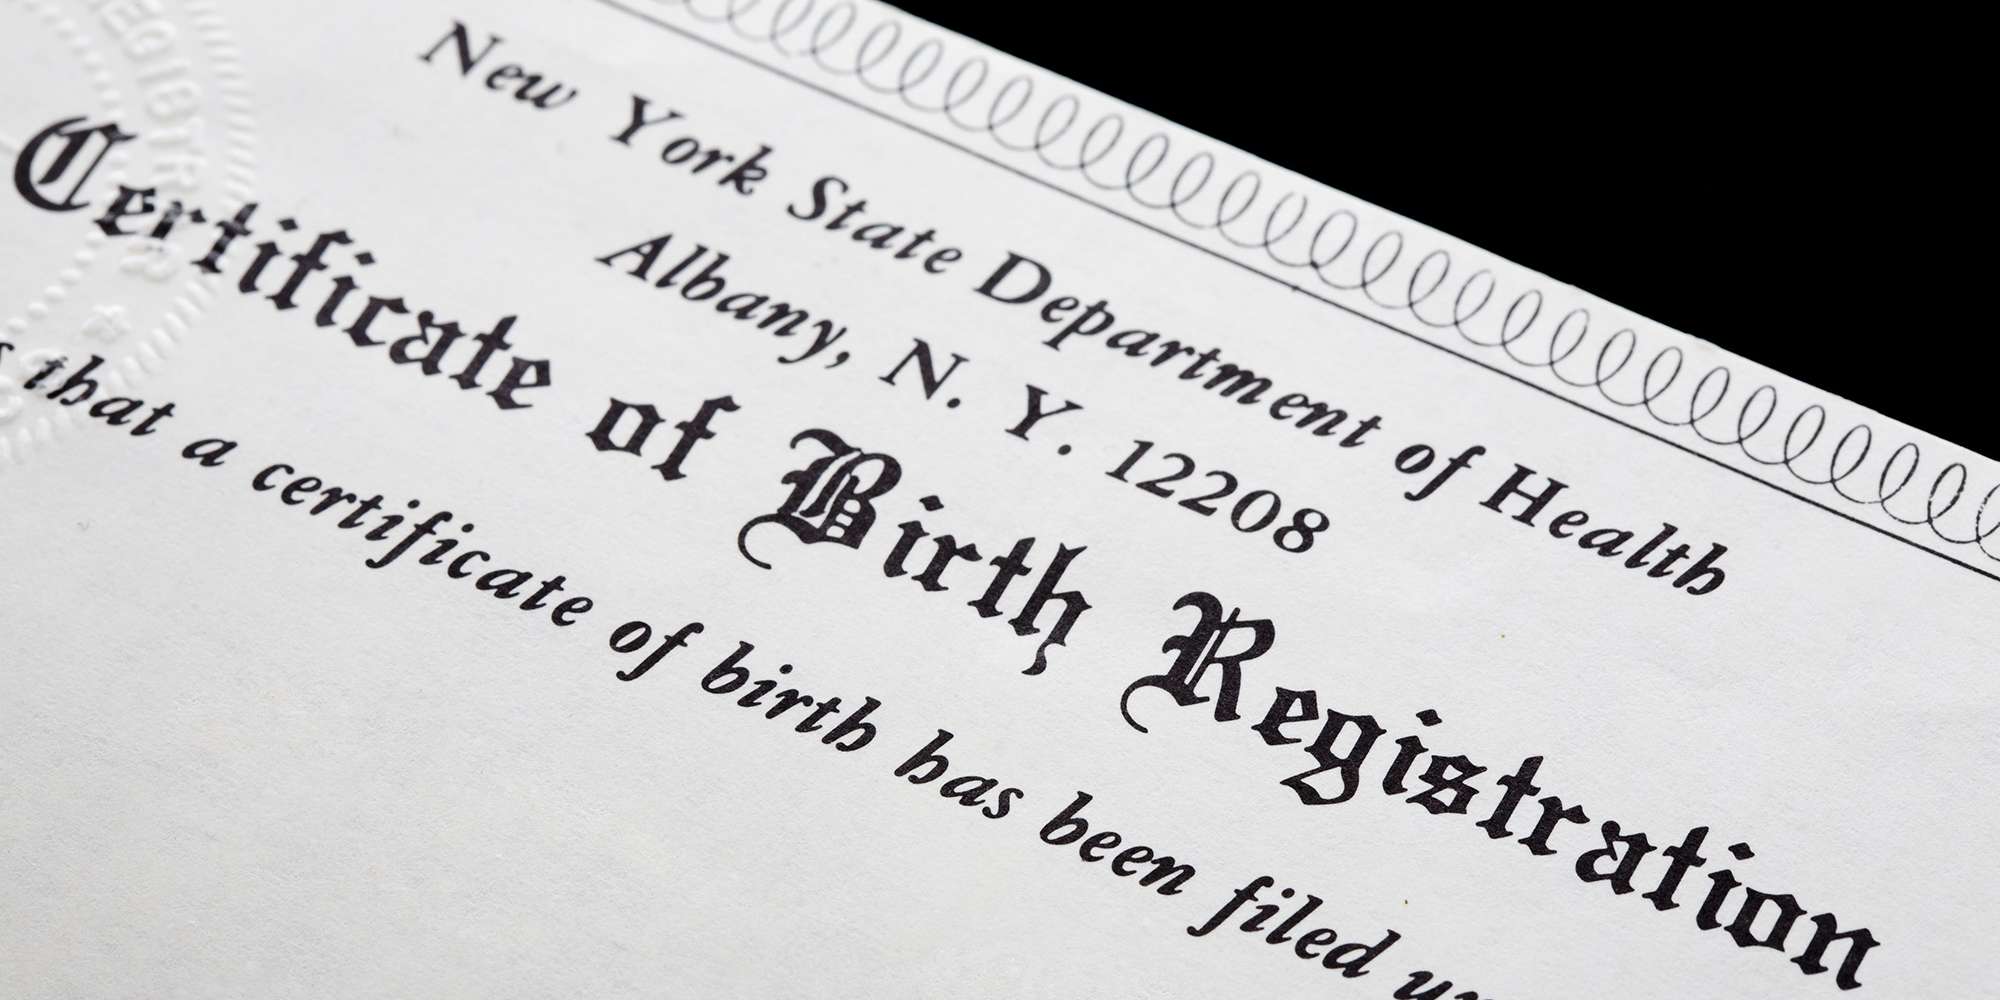 New York State Department of Health
Albany, N. Y. 12208
Certificate of Birth Registration
that a certificate of birth has been filed